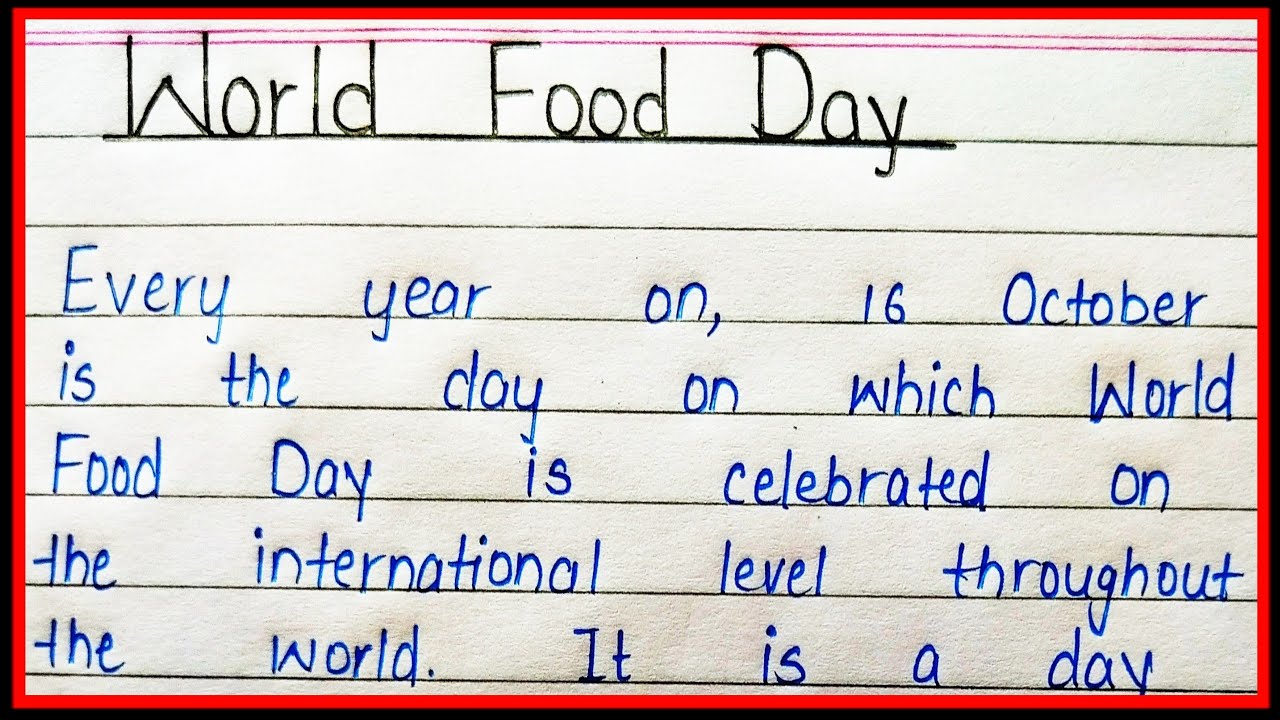 World Food Day
Every year on, 16 October
is the day on which World
Food Day is celebrated on
the international level throughout
the world. It is a day